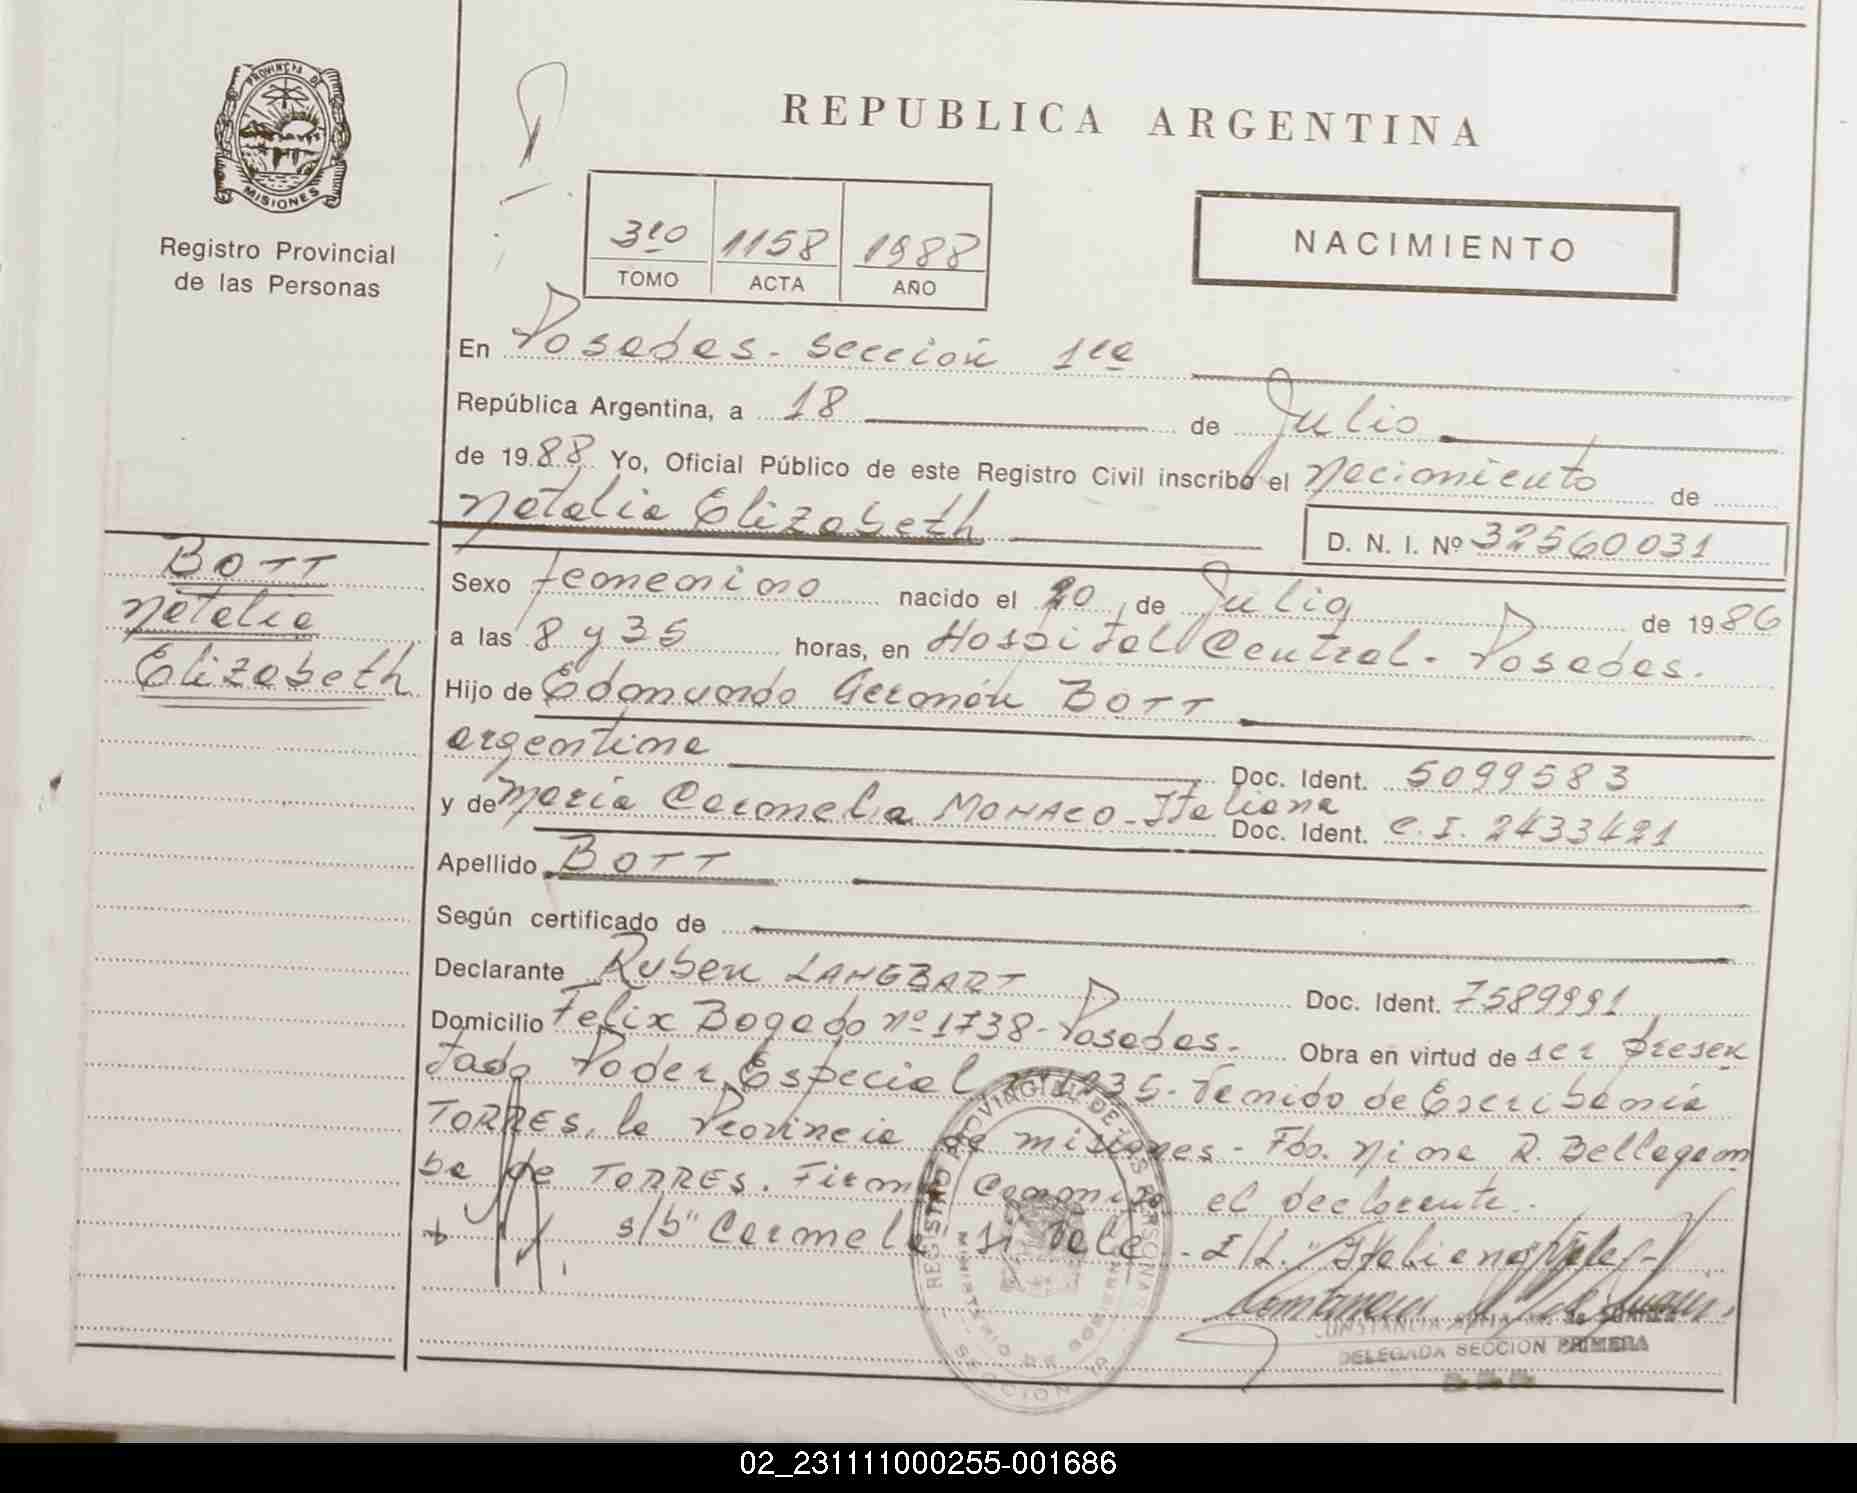 PROVINCIA DE
MISIONES
Registro Provincial
de las Personas
REPUBLICA ARGENTINA
3ro 1158 1988
TOMO ACTA AÑO
NACIMIENTO
En Posadas - Sección 1ra
República Argentina, a 18 de Julio
de 1988 Yo, Oficial Público de este Registro Civil inscribo el Nacimiento de
Natalia Elizabeth
D. N. I. Nº 32560031
BOTT
Natalia
Elizabeth
Sexo femenino nacido el 20 de Julio de 1986
a las 8 y 35 horas, en Hospital Central - Posadas.
Hijo de Edmundo Germán BOTT
argentina Doc. Ident. 5099583
y de María Carmela MONACO - Italiana Doc. Ident. C.I. 2433421
Apellido BOTT
Según certificado de
Declarante Ruben LANGBART Doc. Ident. 7589991
Domicilio Felix Bogado nº 1738 - Posadas. Obra en virtud de ser presen
tado Poder Especial - Venido de Escribanía
TORRES, la Provincia de misiones - Fdo. Nima R. Bellagam
ba de TORRES. Firma Conmigo el declarante.
s/b "Carmela" Si Vale - E/L. "Italiana" Vale -
REGISTRO PROVINCIAL DE LAS PERSONAS
MINISTERIO DE GOBIERNO
SECCION
DELEGADA SECCION PRIMERA
02_231111000255-001686